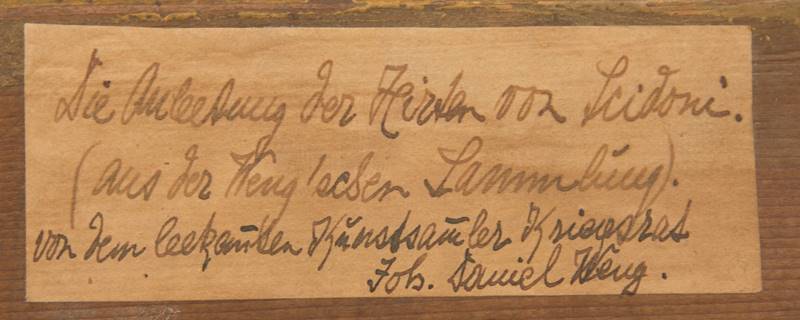 Die Anbetung der Hirten von Scidoni.
(aus der Weng'schen Sammlung).
von dem bekan̄ten Kunstsam̄ler Kriegsrat
Joh. Daniel Weng.